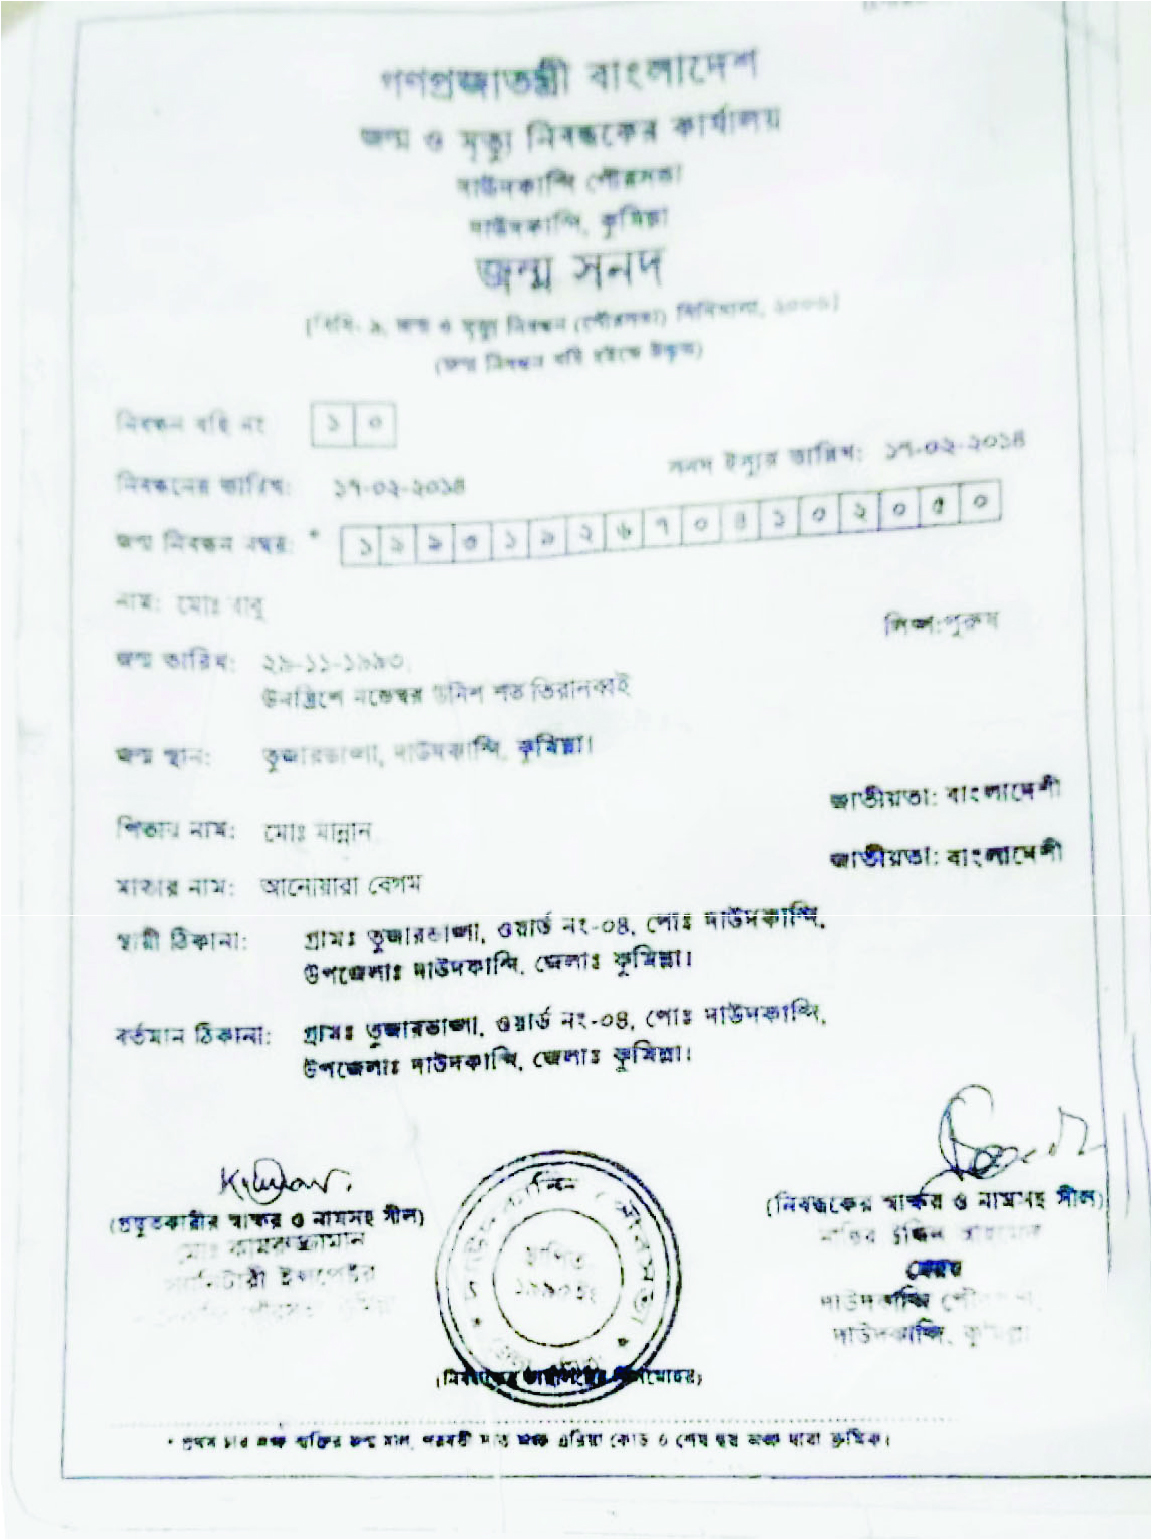 গণপ্রজাতন্ত্রী বাংলাদেশ
জন্ম ও মৃত্যু নিবন্ধকের কার্যালয়
দাউদকান্দি পৌরসভা
দাউদকান্দি, কুমিল্লা
জন্ম সনদ
[বিধি- ৯, জন্ম ও মৃত্যু নিবন্ধন (পৌরসভা) বিধিমালা, ২০০৬]
(জন্ম নিবন্ধন বহি হইতে উদ্ধৃত)
নিবন্ধন বহি নং ১০
নিবন্ধনের তারিখ: ১৭-০২-২০১৪ সনদ ইস্যুর তারিখ: ১৭-০২-২০১৪
জন্ম নিবন্ধন নম্বর: *
নাম: মোঃ বাবু লিঙ্গ:পুরুষ
জন্ম তারিখ: ২৯-১১-১৯৯৩,
উনত্রিশে নভেম্বর উনিশ শত তিরানব্বই
জন্ম স্থান: তুজারভাঙ্গা, দাউদকান্দি, কুমিল্লা।
জাতীয়তা: বাংলাদেশী
পিতার নাম: মোঃ মান্নান
জাতীয়তা: বাংলাদেশী
মাতার নাম: আনোয়ারা বেগম
স্থায়ী ঠিকানা: গ্রামঃ তুজারভাঙ্গা, ওয়ার্ড নং-০৪, পোঃ দাউদকান্দি,
উপজেলাঃ দাউদকান্দি, জেলাঃ কুমিল্লা।
বর্তমান ঠিকানা: গ্রামঃ তুজারভাঙ্গা, ওয়ার্ড নং-০৪, পোঃ দাউদকান্দি,
উপজেলাঃ দাউদকান্দি, জেলাঃ কুমিল্লা।
(প্রস্তুতকারীর স্বাক্ষর ও নামসহ সীল)
মোঃ কামরুজ্জামান
স্যানিটারী ইন্সপেক্টর
(নিবন্ধকের স্বাক্ষর ও নামসহ সীল)
মেয়র
দাউদকান্দি পৌরসভা
দাউদকান্দি, কুমিল্লা
দাউদকান্দি পৌরসভা
স্থাপিত
(নিবন্ধকের কার্যালয়ের সীলমোহর)
* প্রথম চার অঙ্ক ব্যক্তির জন্ম সাল, পরবর্তী সাত অঙ্ক এরিয়া কোড ও শেষ ছয় অঙ্ক দ্বারা ক্রমিক।